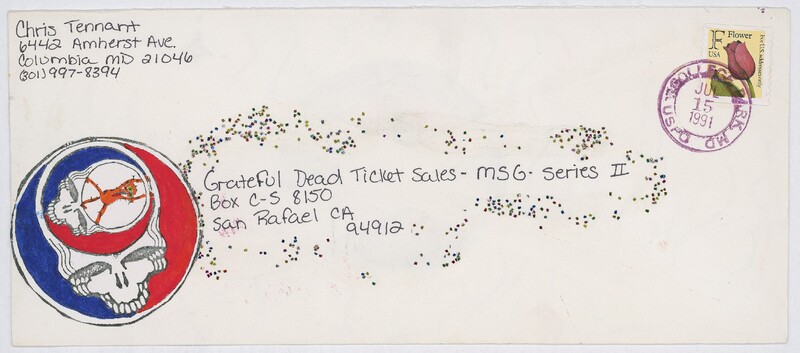 Chris Tennant
6442 Amherst Ave.
Columbia MD 21046
(301) 997-8394
F Flower
USA
For U.S. addresses only
COLLEGE PARK, MD.
USPO
JUL
15
1991
Grateful Dead Ticket Sales - MSG - Series II
Box C-S 8150
San Rafael CA
94912